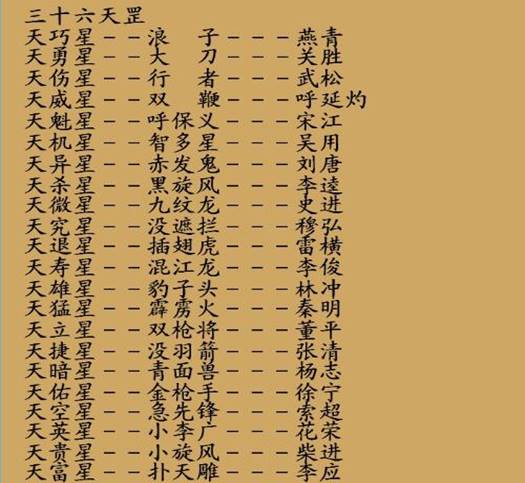 三十六天罡
天巧星--浪 子---燕青
天勇星--大 刀---关胜
天伤星--行 者---武松
天威星--双 鞭---呼延灼
天魁星--呼保义---宋江
天机星--智多星---吴用
天异星--赤发鬼---刘唐
天杀星--黑旋风---李逵
天微星--九纹龙---史进
天究星--没遮拦---穆弘
天退星--插翅虎---雷横
天寿星--混江龙---李俊
天雄星--豹子头---林冲
天猛星--霹雳火---秦明
天立星--双枪将---董平
天捷星--没羽箭---张清
天暗星--青面兽---杨志
天佑星--金枪手---徐宁
天空星--急先锋---索超
天英星--小李广---花荣
天贵星--小旋风---柴进
天富星--扑天雕---李应